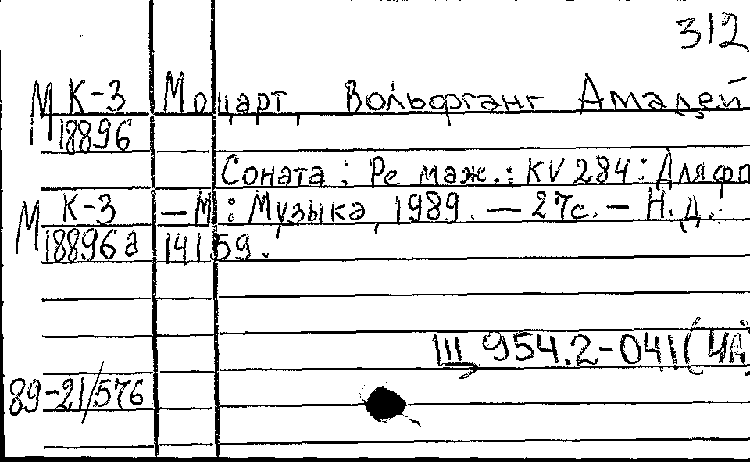 312
М К-3 Моцарт, Вольфганг Амадей
18896
Соната: Ре маж.: KV 284: Для фп
М К-3 — М: Музыка, 1989. — 27с. — Н.д.
18896а 14159.
Ш 954.2-041(4А)
89-21/576